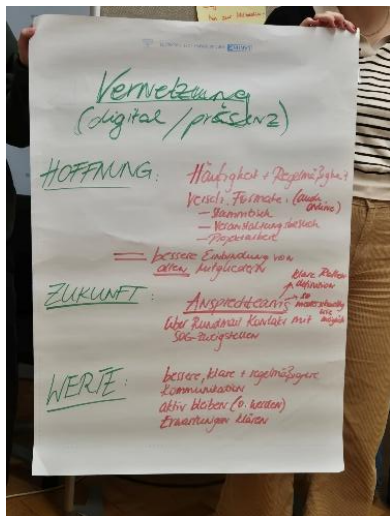 Vernetzung
(digital / präsenz)
HOFFNUNG:
Häufigkeit + Regelmäßigkeit
versch. Formate (auch online)
— Stammtisch
— Veranstaltungsbesuch
— Projektarbeit
bessere Einbindung von
alten Mitgliedern
ZUKUNFT:
Ansprechteams
klare Rollen
definition
so
niederschwellig
wie
möglich
über Rundmail Kontakt mit
SDG-Zweigstellen
WERTE:
bessere, klare + regelmäßigere
Kommunikation
aktiv bleiben (o. werden)
Erwartungen klären